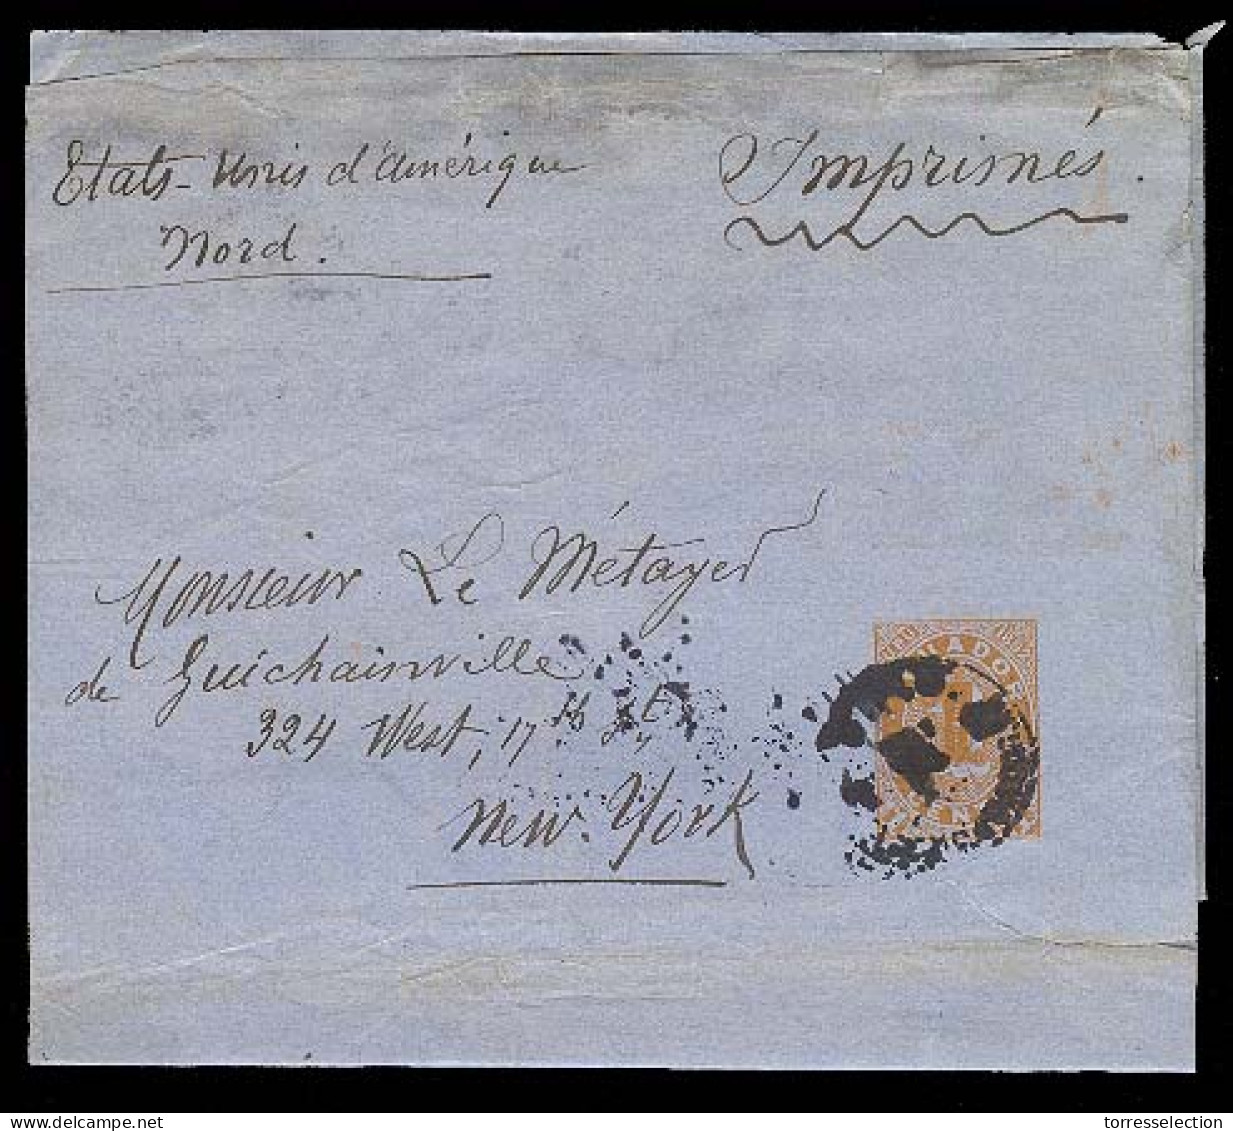 Etats-Unis d'amérique
Nord.
Imprimés.
Monsieur Le Métayer
de Guichainville
324 West, 17th St,
New. York
delcampe.net
torresselection